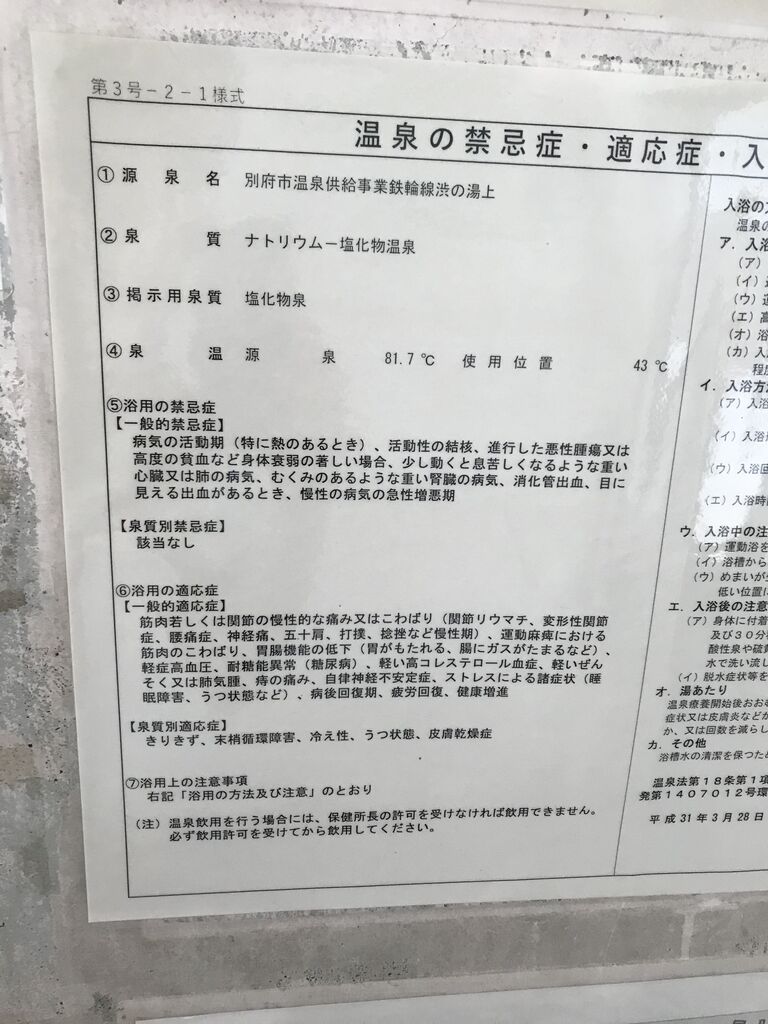 第3号-2-1様式
温泉の禁忌症・適応症・入
①源泉名 別府市温泉供給事業鉄輪線渋の湯上
②泉質 ナトリウム－塩化物温泉
③掲示用泉質 塩化物泉
④泉温 源泉 81.7 ℃ 使用位置 43 ℃
⑤浴用の禁忌症
【一般的禁忌症】
病気の活動期（特に熱のあるとき）、活動性の結核、進行した悪性腫瘍又は
高度の貧血など身体衰弱の著しい場合、少し動くと息苦しくなるような重い
心臓又は肺の病気、むくみのあるような重い腎臓の病気、消化管出血、目に
見える出血があるとき、慢性の病気の急性増悪期
【泉質別禁忌症】
該当なし
⑥浴用の適応症
【一般的適応症】
筋肉若しくは関節の慢性的な痛み又はこわばり（関節リウマチ、変形性関節
症、腰痛症、神経痛、五十肩、打撲、捻挫など慢性期）、運動麻痺における
筋肉のこわばり、胃腸機能の低下（胃がもたれる、腸にガスがたまるなど）、
軽症高血圧、耐糖能異常（糖尿病）、軽い高コレステロール血症、軽いぜん
そく又は肺気腫、痔の痛み、自律神経不安定症、ストレスによる諸症状（睡
眠障害、うつ状態など）、病後回復期、疲労回復、健康増進
【泉質別適応症】
きりきず、末梢循環障害、冷え性、うつ状態、皮膚乾燥症
⑦浴用上の注意事項
右記「浴用の方法及び注意」のとおり
（注）温泉飲用を行う場合には、保健所長の許可を受けなければ飲用できません。
必ず飲用許可を受けてから飲用してください。
入浴の
温泉の
ア．入浴
（ア）
（イ）
（ウ）
（エ）
（オ）浴
（カ）入
程度
イ．入浴方
（ア）入浴
（イ）入浴
（ウ）入浴回
（エ）入浴時
ウ．入浴中の注
（ア）運動浴を
（イ）浴槽から
（ウ）めまいが
低い位置に
エ．入浴後の注意
（ア）身体に付着
及び30分
酸性泉や硫黄
水で洗い流し
（イ）脱水症状等を
オ．湯あたり
温泉療養開始後おおむ
症状又は皮膚炎など
か、又は回数を減らし
カ．その他
浴槽水の清潔を保つため
温泉法第18条第1項
発第1407012号環
平成31年3月28日